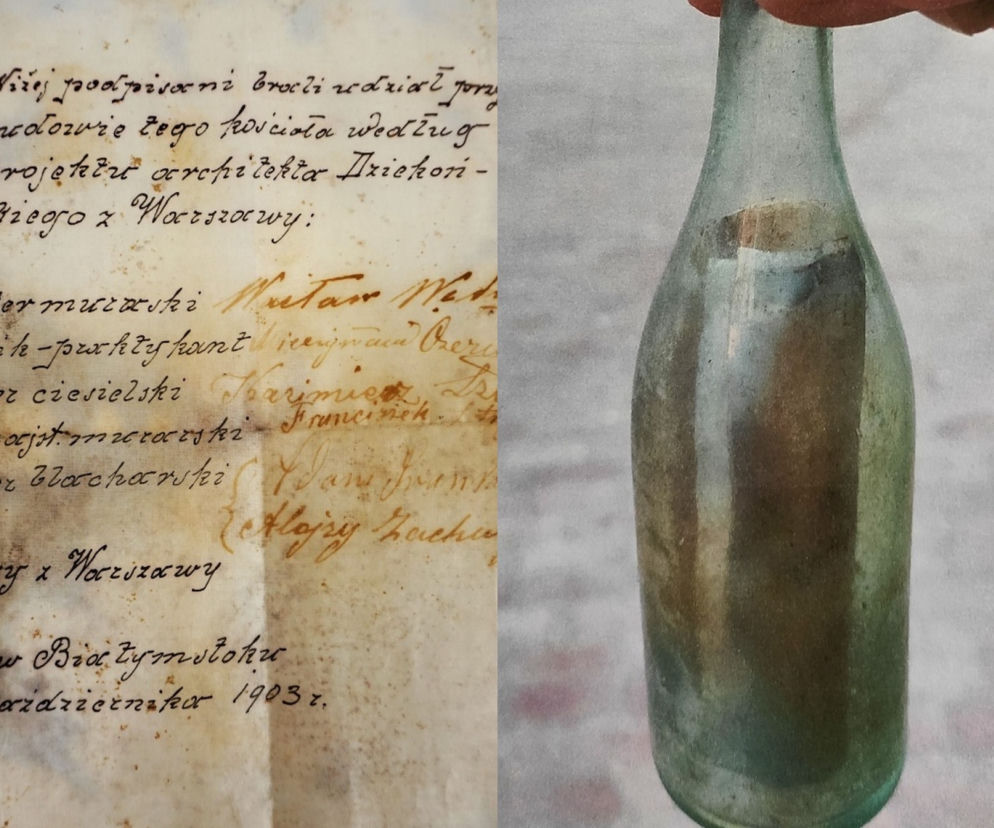 Niżej podpisani brali udział przy
udowie tego kościoła według
rojektu architekta Dziekoń-
kiego z Warszawy:
er murarski Wacław
ik-praktykant
er ciesielski Kazimierz
ajst. murarski Franciszek
r blacharski Adam
Alojzy
y z Warszawy
w Białymstoku
aździernika 1903 r.